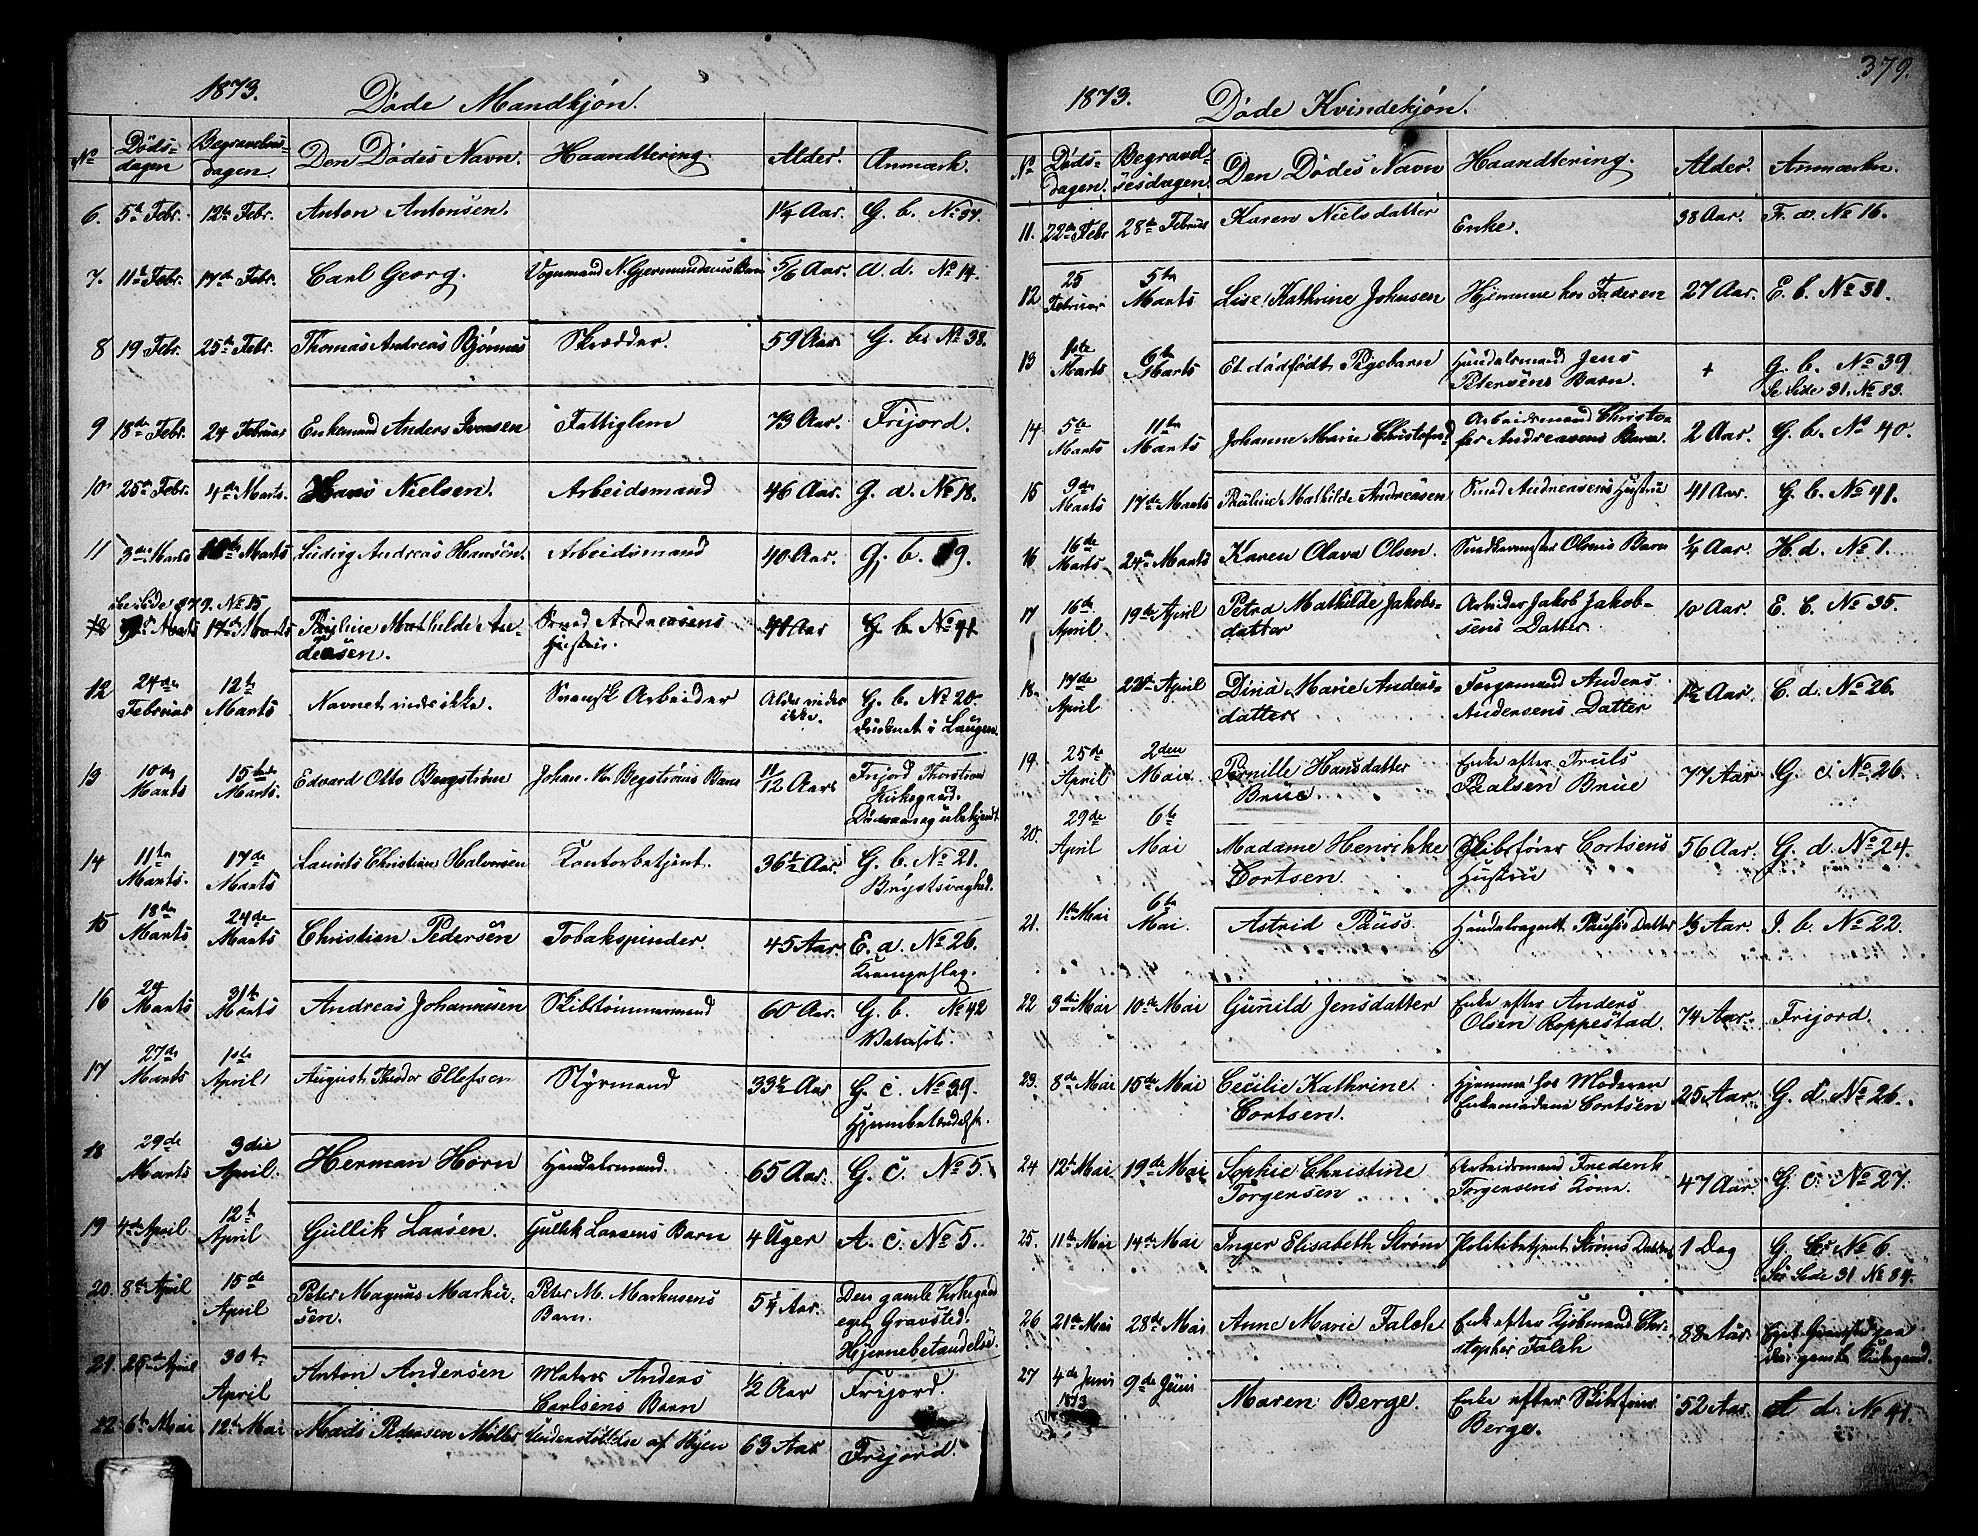 1873. Døde Mandkjøn.
No Døds-dagen Begravelses-dagen. Den Dødes Navn. Haandtering. Alder. Anmærk.
6. 5te Febr. 12te Febr. Anton Antonsen. 1¼ Aar. G. b. No 37.
7. 11te Febr. 17de Febr. Carl Georg. Vognmand N. Gjermundsens Barn 5/6 Aar. a. d. No 14.
8 19 Febr. 25de Febr. Thomas Andreas Bjønnes Skrædder. 59 Aar G. b. No 38.
9 18de Febr. 24 Februar Enkemand Anders Iversen Fattiglem 73 Aar. Frijord.
10 25de Febr. 4de Marts. Hans Nielsen. Arbeidsmand 46 Aar. G. a. No 18.
11 3die Marts Marts Ludvig Andreas Hansen. Arbeidsmand 40 Aar. G. b. 19.
See Side 379. No 15
12 9de Marts 17de Marts Pauline Mathilde An-
dreasen. Smed Andreasens
Hustru. 41 Aar G. b. No 41.
12 24de
Februar 12te
Marts Navnet vides ikke. Svensk Arbeider Alder vides
ikke. G. b. No 20.
druknet i Laugen
13 10de
Marts 15tende
Marts. Edvard Otto Bergstrøm Johan K. Begstrøms Barn 11/12 Aar Frijord Thorstrøm
Kirkegaard.
Dødsaarsag ubekjendt
14 11te
Marts. 17de
Marts Laurits Christian Halvorsen Kontorbetjent. 36½ Aar. G. b. No 21.
Brystsvaghed.
15 18de
Marts 24de
Marts Christian Pedersen Tobakspinder. 45 Aar. E. a. No 26.
Krampeslag.
16 24
Marts 31te
Marts Andreas Johannesen Skibstømmermand 60 Aar. G. b. No 42
Vatersot.
17 27de
Marts 1ste
April August Theodor Ellefsen Styrmand 33½ Aar G. c. No 39.
Hjernebetændelse.
18 29de
Marts 3die
April. Herman Horn Handelsmand. 65 Aar. G. c. No 5
19 4de April 12te
April Gullik Larsen. Gullik Larsens Barn 4 Uger A. c. No 5.
20. 8de April 15de
April Peter Magnus Marku-
sen. Peter M. Markusens
Barn. 5¼ Aar. Den gamle Kirkegaard
eget Gravsted.
Hjernebetændelse.
21. 25de April 30te
April Anton Andersen Matros Anders
Carlsens Barn ½ Aar Frijord.
22 6te Mai 12te Mai Mads Pedersen Møller Understøttelse af Byen 63 Aar Frijord.
379.
1873. Døde Kvindekjøn.
No Døds-
dagen. Begravel-
sesdagen. Den Dødes Navn Haandtering. Alder. Anmærkn.
11. 22de Febr 28de Februar Karen Nielsdatter Enke. 38 Aar. F. a. No 16.
12 25
Februar 5te
Marts Lise Kathrine Johnsen Hjemme hos Faderen 27 Aar. E. b. No 31.
13 1ste
Marts 6te
Marts Et dødfødt Pigebarn Handelsmand Jens
Petersens Barn. + G. b. No 39
Se Side 31. No 83.
14 5te
Marts 11te
Marts Johanne Marie Christofersd Arbeidsmand Christo-
fer Andreasens Barn. 2 Aar. G. b. No 40.
15 9de
Marts 17de Marts Pauline Mathilde Andreasen Smed Andreasens Hustru 41 Aar. G. b. No 41.
16 16de
Marts 24de Marts Karen Olava Olsen. Olsens Barn ¼ Aar H. d. No 1.
17 16de
April 19de April Petra Mathilde Jakobs-
datter Arbeider Jakob Jakob-
sens Datter. 10 Aar. E. C. No 35.
18. 17de
April 22de April Dina Marie Anders-
datter. Anders
Andersens Datter 1½ Aar. C. d. No 26.
19. 25de
April 2den
Mai Pernille Hansdatter
Brue Enke efter Truls
Paalsen Brue 77 Aar G. c. No 26.
20. 29de
April 6te
Mai Madame Henrikke
Cortsen. Skibsfører Cortsens
Hustru 56 Aar. G. d. No 24.
21. 1ste Mai 6te
Mai. Astrid Pauss. Handelsagent Paus's Datter 1/3 Aar. I. b. No 22.
22 3die Mai 10de Mai Gunild Jensdatter Enke efter Anders
Olsen Roppestad. 74 Aar. Frijord.
23. 8de Mai 15de Mai Cecilie Kathrine
Cortsen. Hjemme hos Moderen
Enkemadame Cortsen 25 Aar G. d No 26.
24 12te Mai 19de Mai Sophie Christine
Jørgensen Arbeidsmand Frederik
Jørgensens Kone. 47 Aar. G. c. No 27.
25. 11te Mai 14de Mai Inger Elisabeth Strøm Politibetjent Strøms Datter 1 Dag G. No 6.
Se Side 31 No 84.
26 21de Mai 28de Mai Anne Marie Falck Enke efter Kjøbmand Chri-
stopher Falck 88 Aar. Eget Gravsted paa
den gamle Kirkegaard.
27 4de Juni
1873 9de Juni Maren Berge. Enke efter Skibsfører
Berge. 52 Aar. A d. No 41.